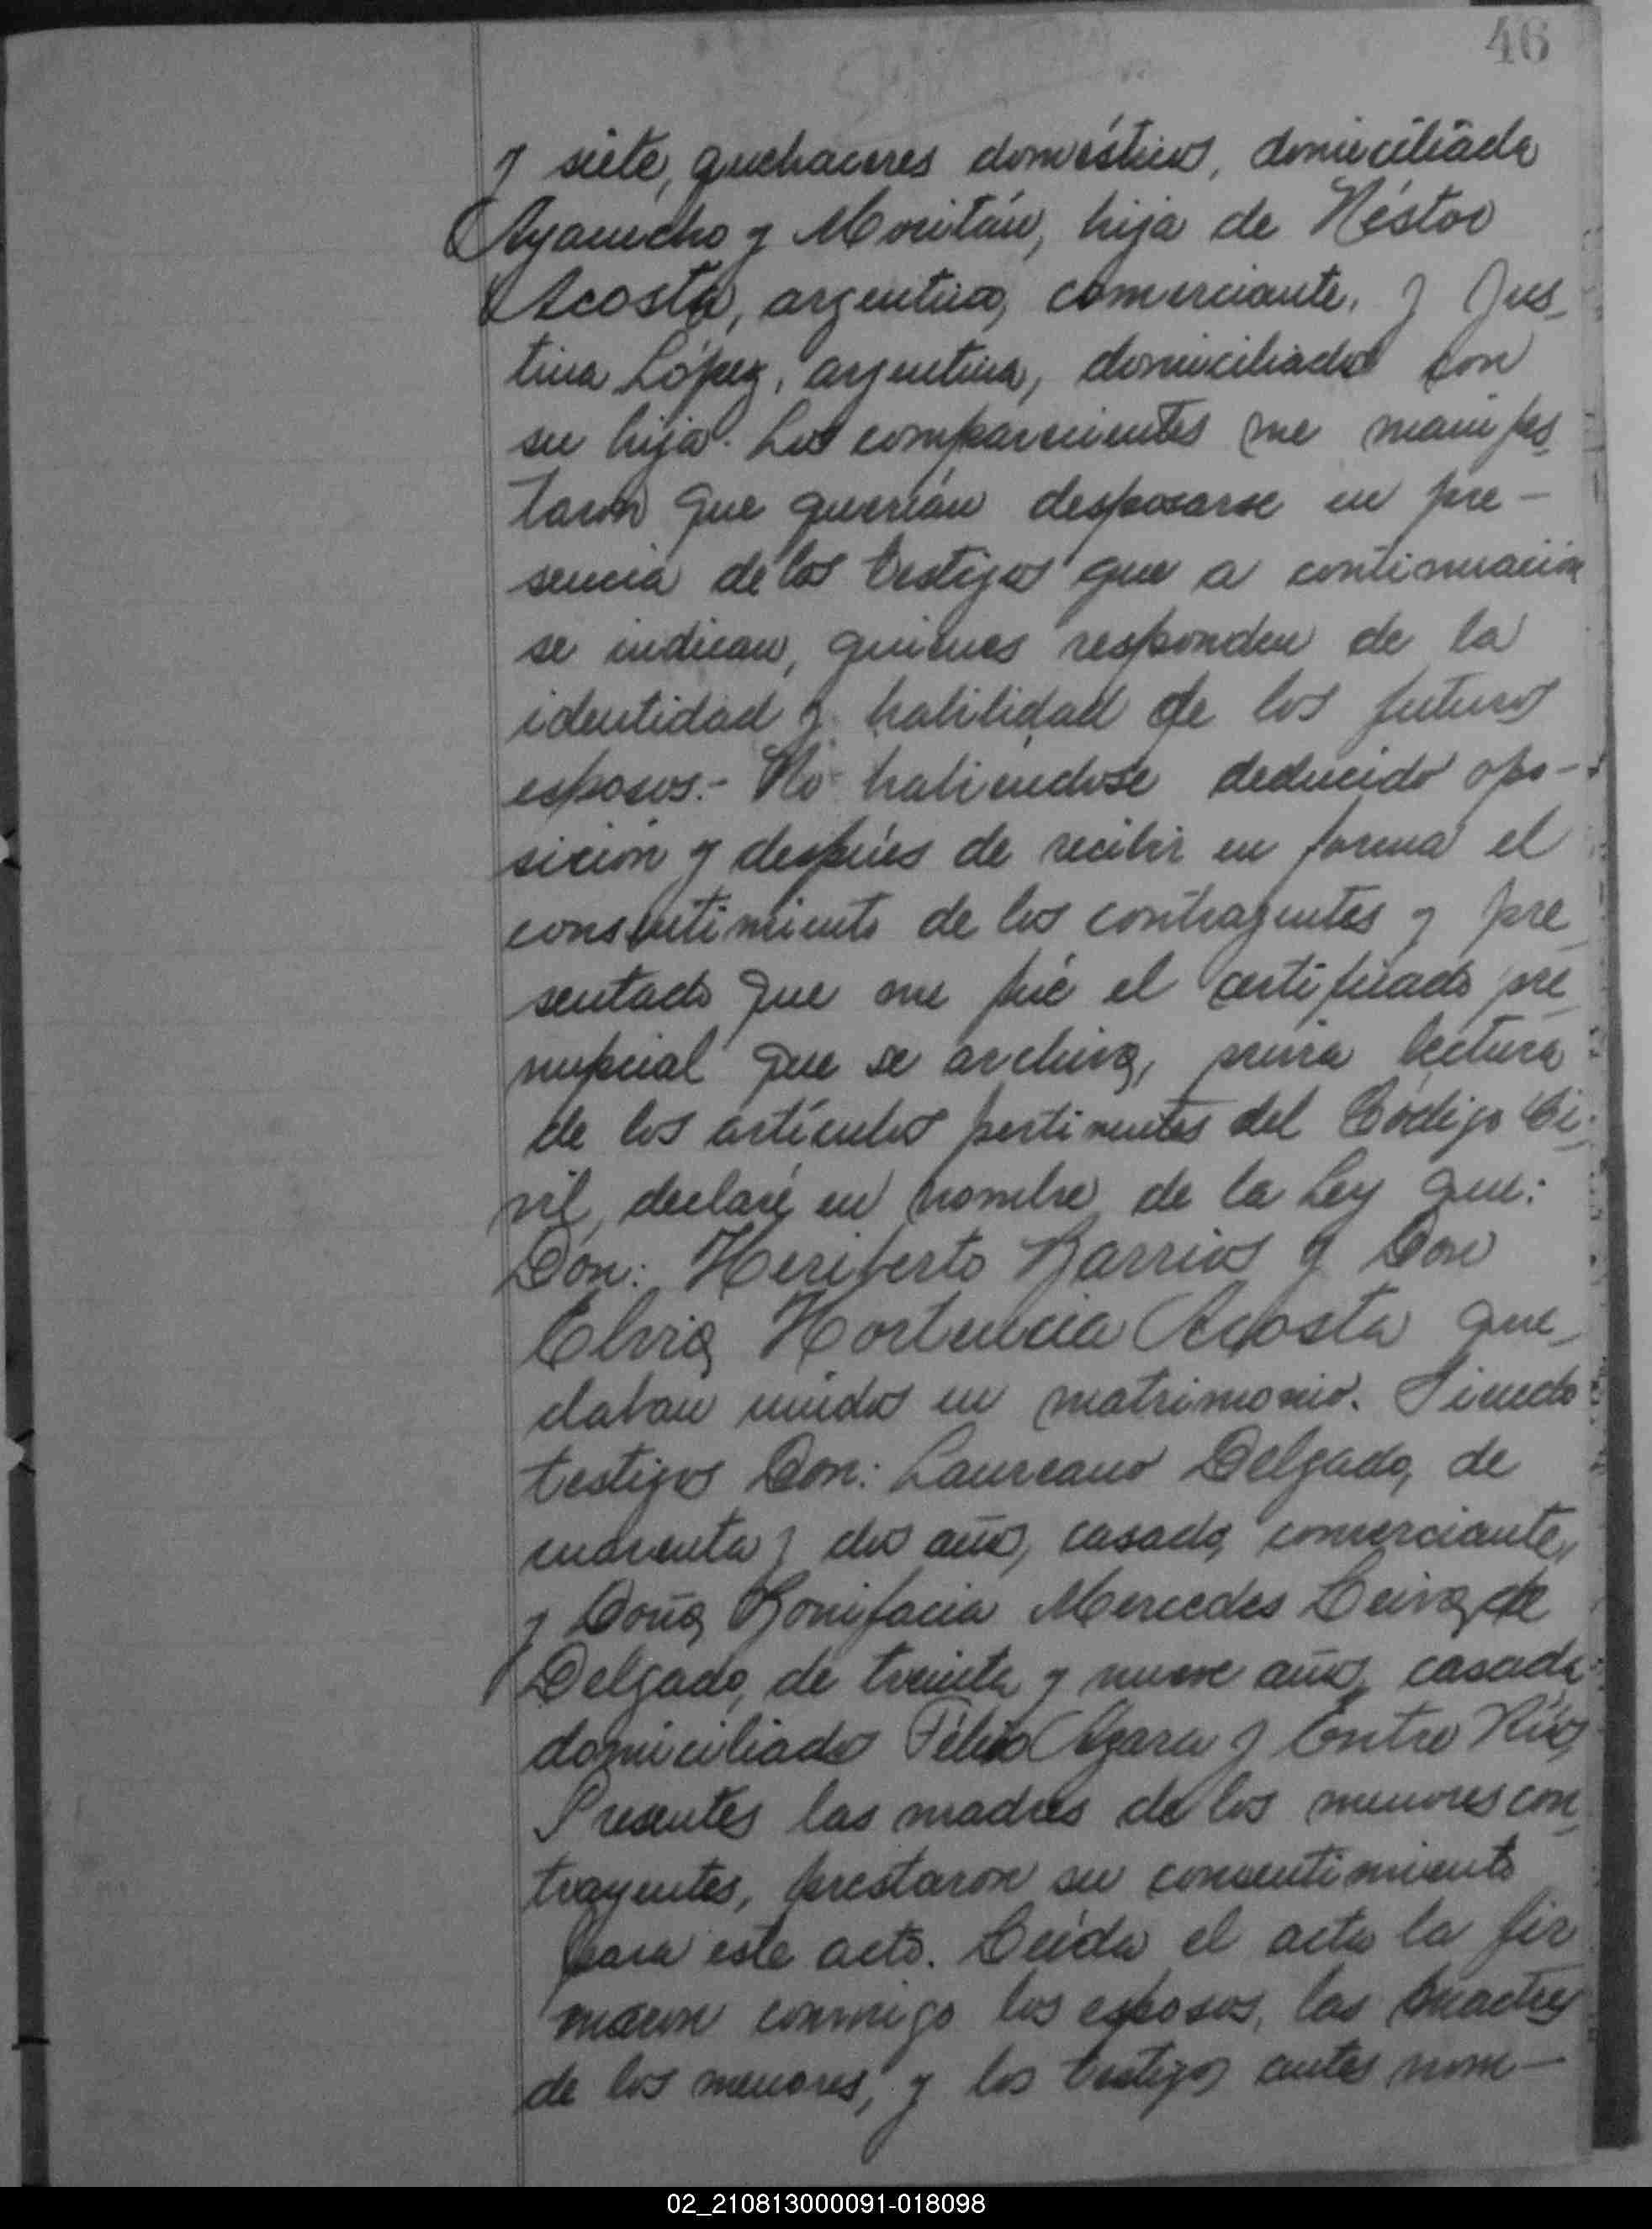 46
y siete, quehaceres domésticos, domiciliada
Ayacucho y Moritán, hija de Néstor
Acosta, argentino, comerciante, y Jus_
tina López, argentina, domiciliados con
su hija. Los comparecientes me manifes_
taron que querían desposarse en pre-
sencia de los testigos que a continuación
se indican, quienes responden de la
identidad y habilidad de los futuros
esposos.- No habiéndose deducido opo-
sición y después de recibir en forma el
consentimiento de los contrayentes y pre_
sentado que me fué el certificado pre_
nupcial que se archiva, previa lectura
de los artículos pertinentes del Código Ci-
vil, declaré en nombre de la Ley que:
Don: Heriberto Barrios y Don
Elvia Hortencia Acosta que_
daban unidos en matrimonio. Siendo
testigos Don: Laureano Delgado, de
cuarenta y dos años, casado, comerciante,
y Doña Bonifacia Mercedes Leiva de
Delgado, de treinta y nueve años, casada
domiciliados Félix Azara y Entre Ríos,
Presentes las madres de los menores con_
trayentes, prestaron su consentimiento
para este acto. Leída el acta la fir
maron conmigo los esposos, las madres
de los menores, y los testigos antes nom-
02_210813000091-018098